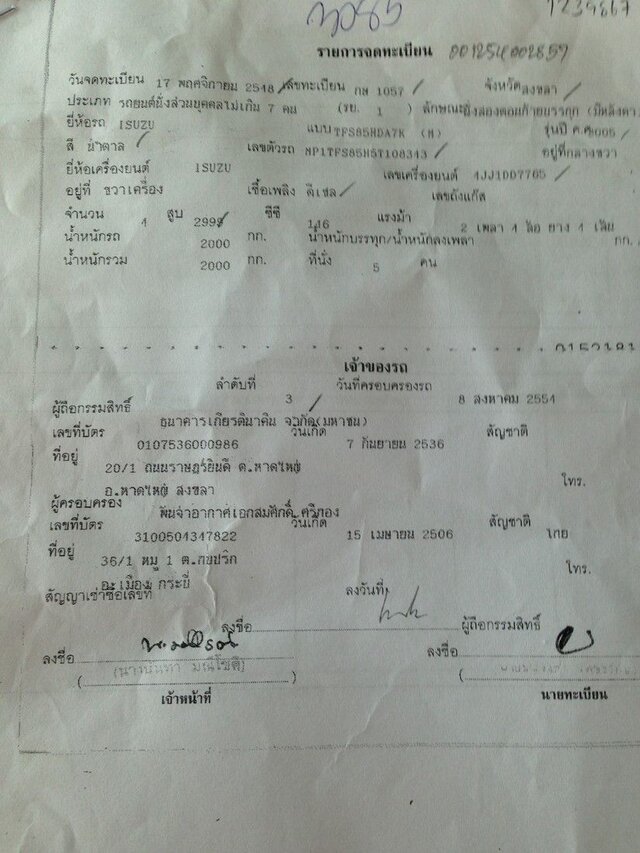 1234667
รายการจดทะเบียน 001254002857
วันจดทะเบียน 17 พฤศจิกายน 2548 เลขทะเบียน กษ 1057 จังหวัด สงขลา
ประเภท รถยนต์นั่งส่วนบุคคลไม่เกิน 7 คน (รย. 1) ลักษณะ นั่งสองตอนท้ายบรรทุก (มีหลังคา
ยี่ห้อรถ ISUZU แบบ TFS85HDA7K (M) รุ่นปี ค.ศ. 2005
สี น้ำตาล เลขตัวรถ MP1TFS85H5T108343 อยู่ที่ กลางขวา
ยี่ห้อเครื่องยนต์ ISUZU เลขเครื่องยนต์ 4JJ1D07765
อยู่ที่ ขวาเครื่อง เชื้อเพลิง ดีเซล เลขถังแก๊ส
จำนวน 4 สูบ 2999 ซีซี 146 แรงม้า 2 เพลา 4 ล้อ ยาง 4 เส้น
น้ำหนักรถ 2000 กก. น้ำหนักบรรทุก/น้ำหนักลงเพลา กก.
น้ำหนักรวม 2000 กก. ที่นั่ง 5 คน
เจ้าของรถ
ลำดับที่ 3 วันที่ครอบครองรถ 8 สิงหาคม 2554
ผู้ถือกรรมสิทธิ์ ธนาคารเกียรตินาคิน จำกัด(มหาชน)
เลขที่บัตร 0107536000986 วันเกิด 7 กันยายน 2536 สัญชาติ
ที่อยู่ 20/1 ถนนราษฎร์ยินดี ต.หาดใหญ่
อ.หาดใหญ่ สงขลา โทร.
ผู้ครอบครอง พันจ่าอากาศเอกสมศักดิ์ ศรีทอง
เลขที่บัตร 3100504347822 วันเกิด 15 เมษายน 2506 สัญชาติ ไทย
ที่อยู่ 36/1 หมู่ 1 ต.ทับปริก
อ.เมือง กระบี่ โทร.
สัญญาเช่าซื้อเลขที่ ลงวันที่
ลงชื่อ ผู้ถือกรรมสิทธิ์
ลงชื่อ ลงชื่อ
เจ้าหน้าที่ นายทะเบียน